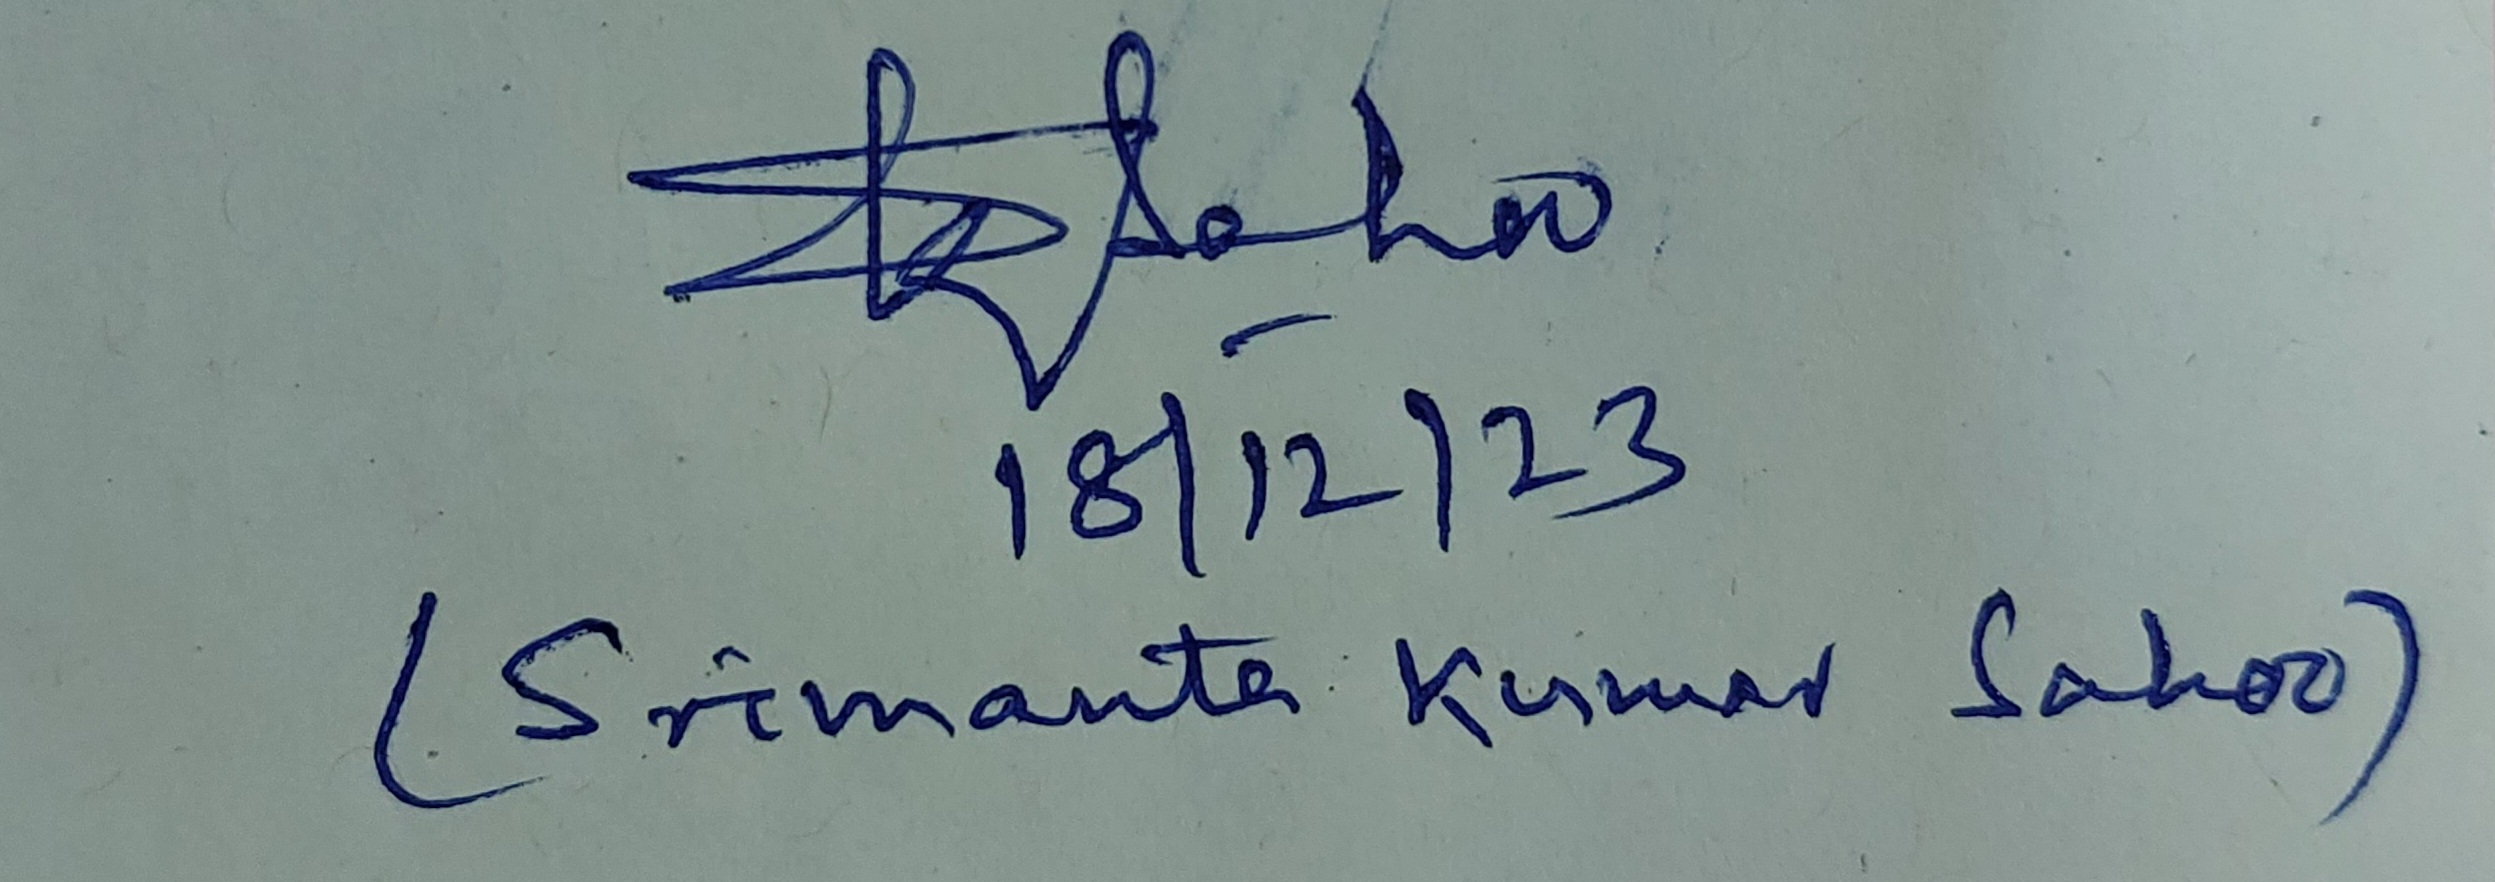 SKSahoo
18/12/23
(Srimanta Kumar Sahoo)